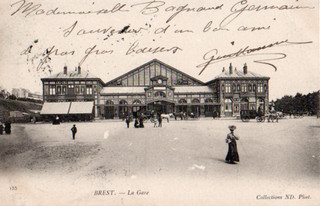 Mademoiselle Bagnard Germaine
Souvenir d'un bon ami
gros baisers
Guillaume
135
BREST. — La Gare
Collections ND. Phot.